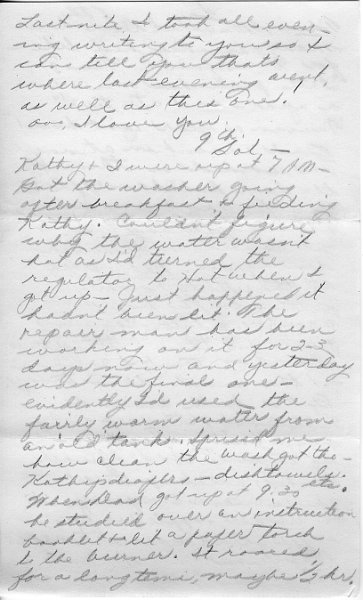 Last nite I took all even-
ing writing to you so I
can tell you that's
where last evening went,
as well as this one.
oo, I love you.
9th
Sat -
Kathy & I were up at 7 AM -
Got the washer going
after breakfast & feeding
Kathy. Couldn't figure
why the water wasn't
hot as I'd turned the
regulator to Hot when I
got up - just happened it
hadn't been lit. The
repair man has been
working on it for 2-3
days now and yesterday
was the final one -
evidently I'd used the
fairly warm water from
an old tank. Surprised me
how clean the wash got tho -
Kathy's diapers - dishtowels etc.
When Dad got up at 9:30
he studied over an instruction
booklet & lit a paper torch
to the burner. It roared
for a long time, maybe 1/2 hr,